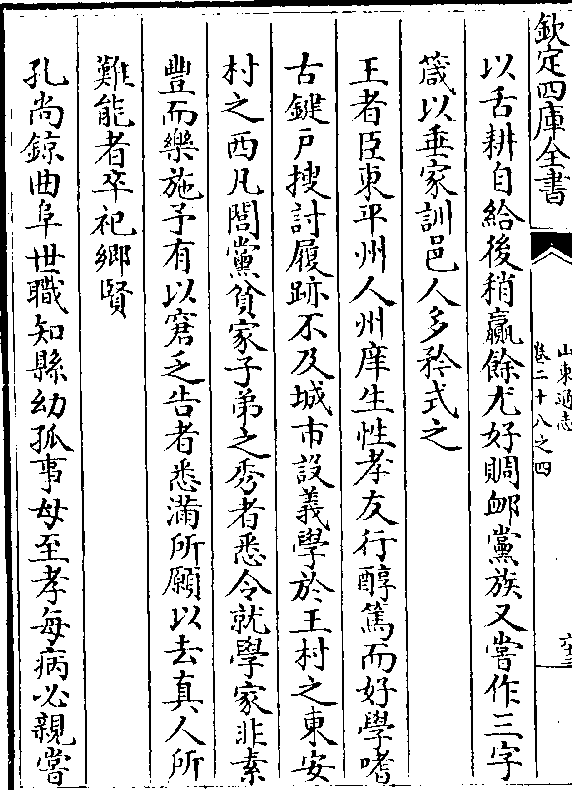 欽定四庫全書
山東通志
卷二十八之四
六十三
以舌耕自給後稍贏餘尤好賙卹黨族又嘗作三字
箴以垂家訓邑人多矜式之
王者臣東平州人州庠生性孝友行醇篤而好學嗜
古鍵戸搜討履跡不及城市設義學於王村之東安
村之西凡閭黨貧家子弟之秀者悉令就學家非素
豐而樂施予有以窘乏告者悉滿所願以去真人所
難能者卒祀鄉賢
孔尚鍄曲阜世職知縣幼孤事母至孝每病必親嘗